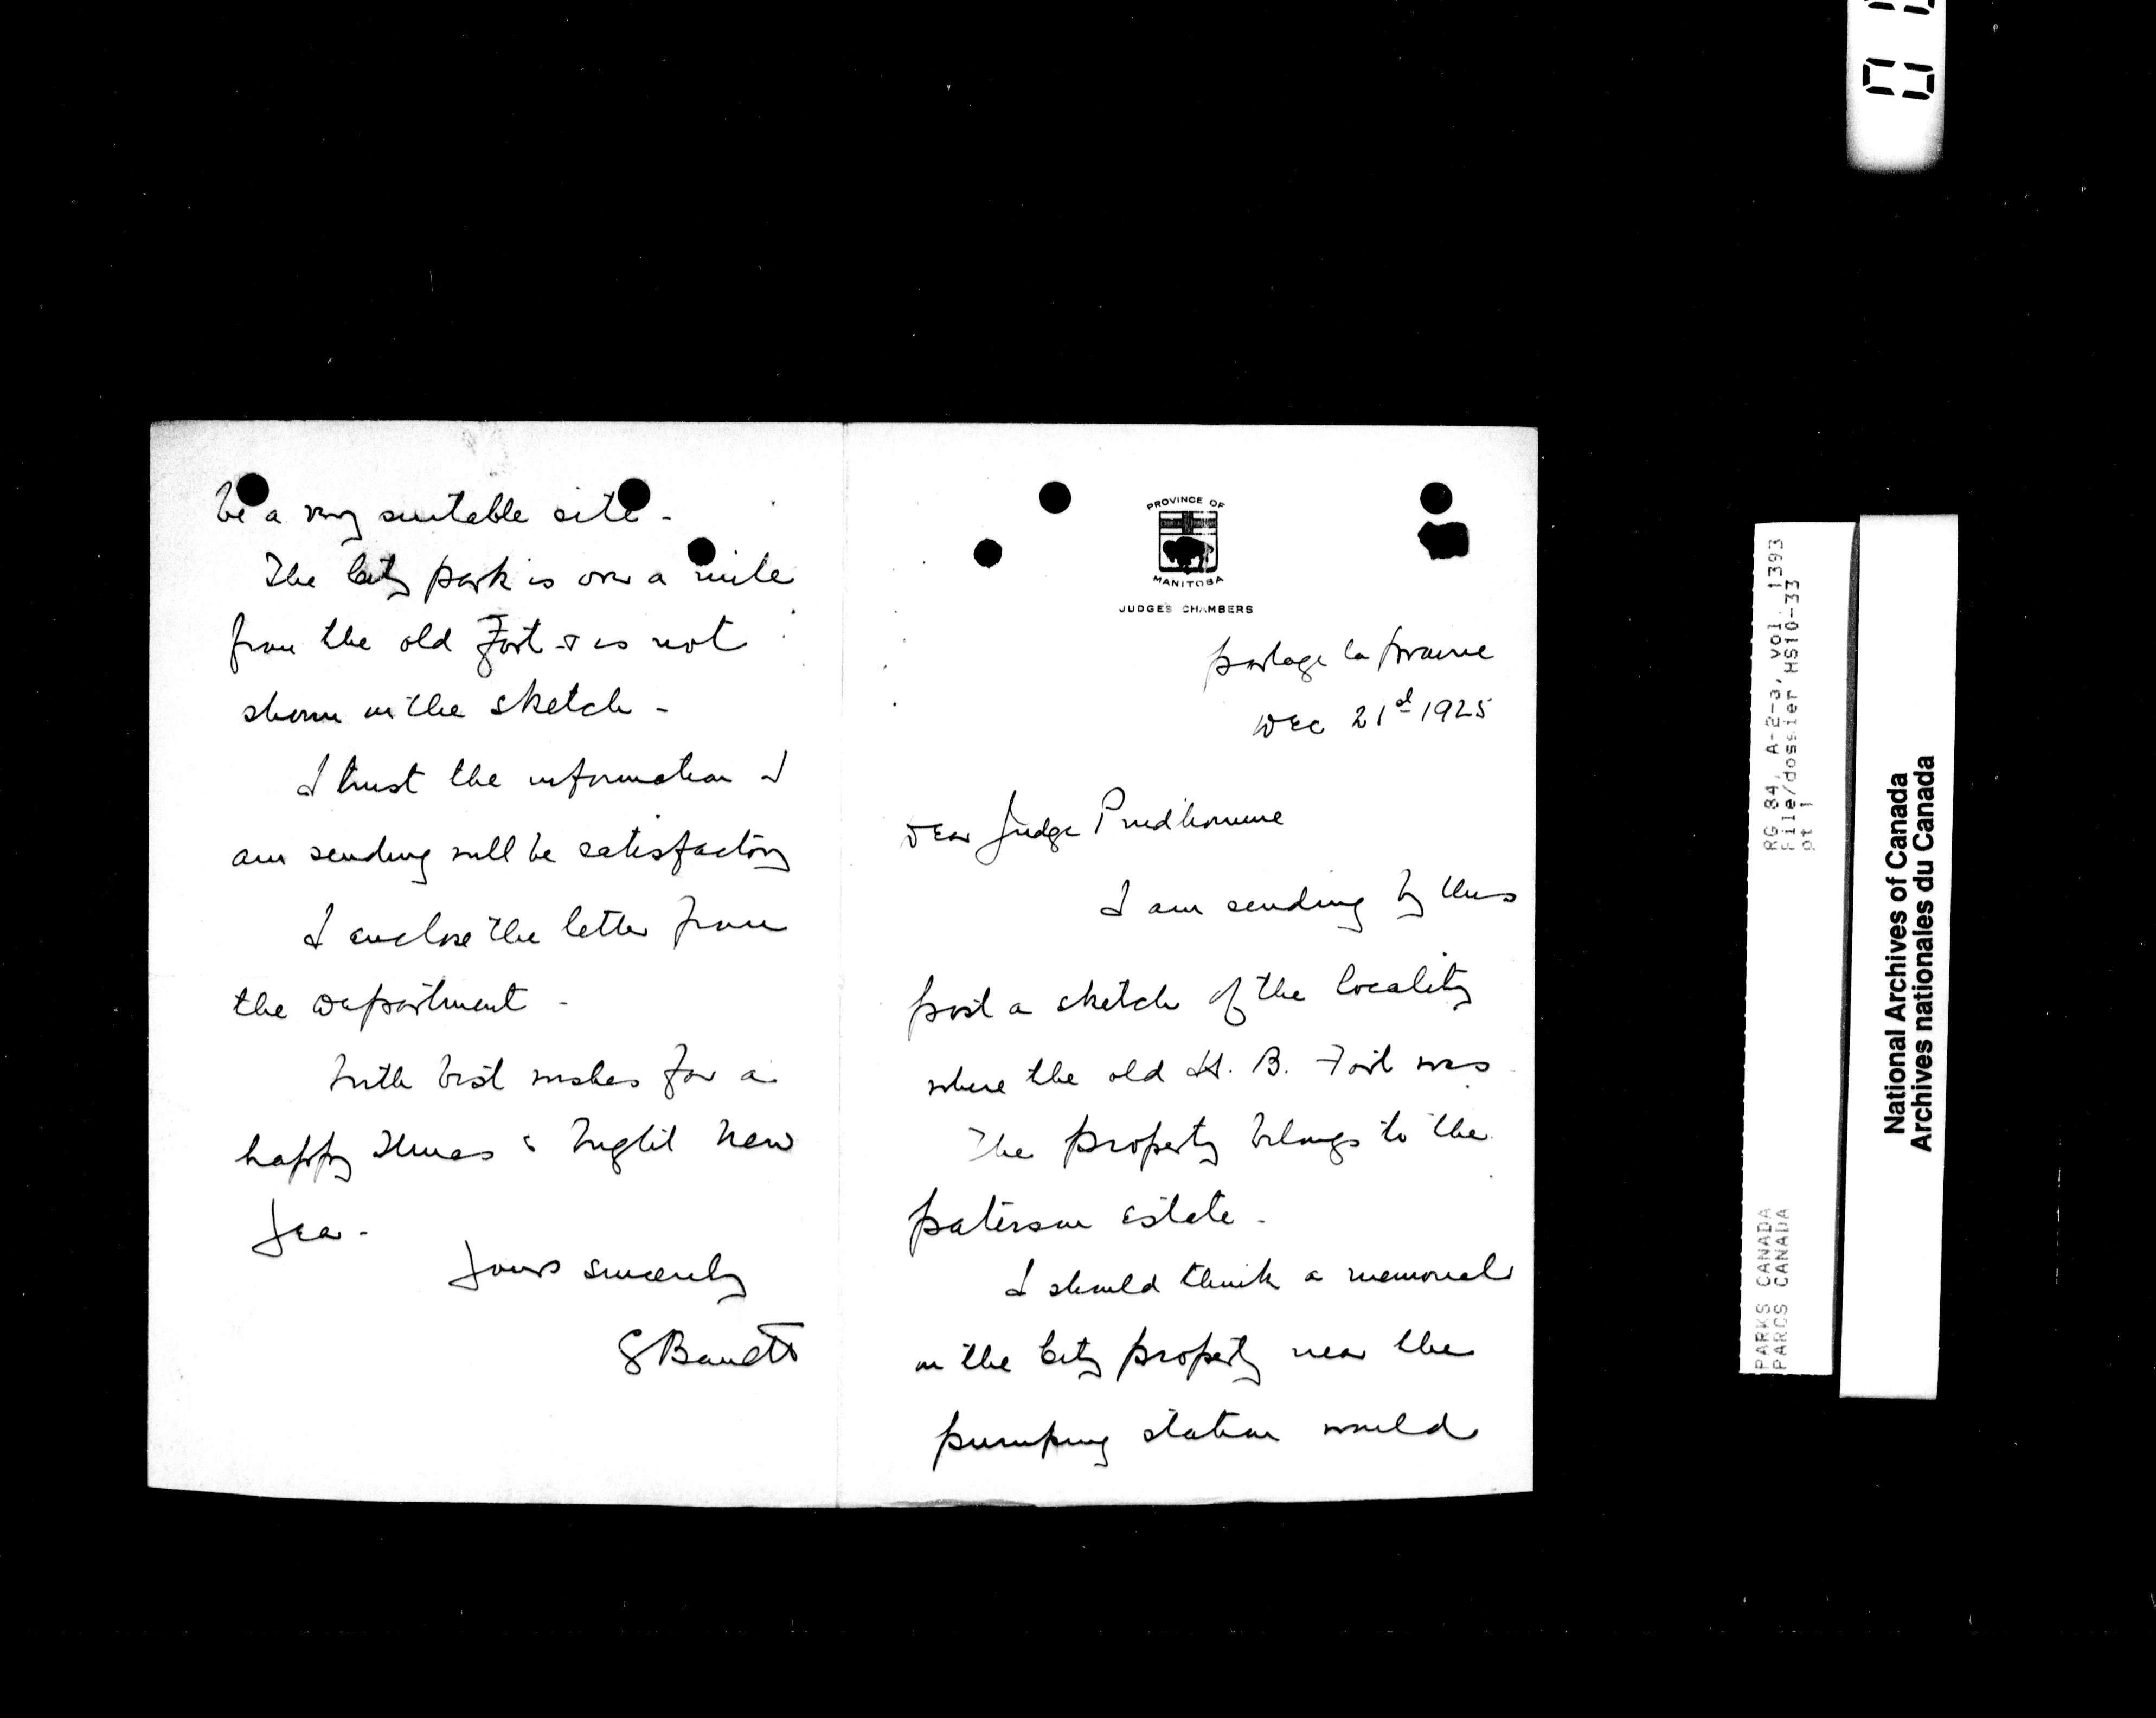 PROVINCE OF
MANITOBA
JUDGES CHAMBERS
portage la prairie
Dec 21d 1925
Dear Judge Prudhomme
I am sending by this
post a sketch of the locality
where the old H. B. Fort was
The property belongs to the
paterson estate -
I should think a memorial
on the City property near the
pumping station would
be a very suitable site -
The City park is over a mile
from the old Fort & is not
shown in the sketch -
I trust the information I
am sending will be satisfactory
I enclose the letter from
the department -
With best wishes for a
happy Xmas & bright New
Year -
Yours sincerely
RG 84, A-2-a, vol. 1393
File/dossier HS10-33
pt 1
PARKS CANADA
PARCS CANADA
National Archives of Canada
Archives nationales du Canada